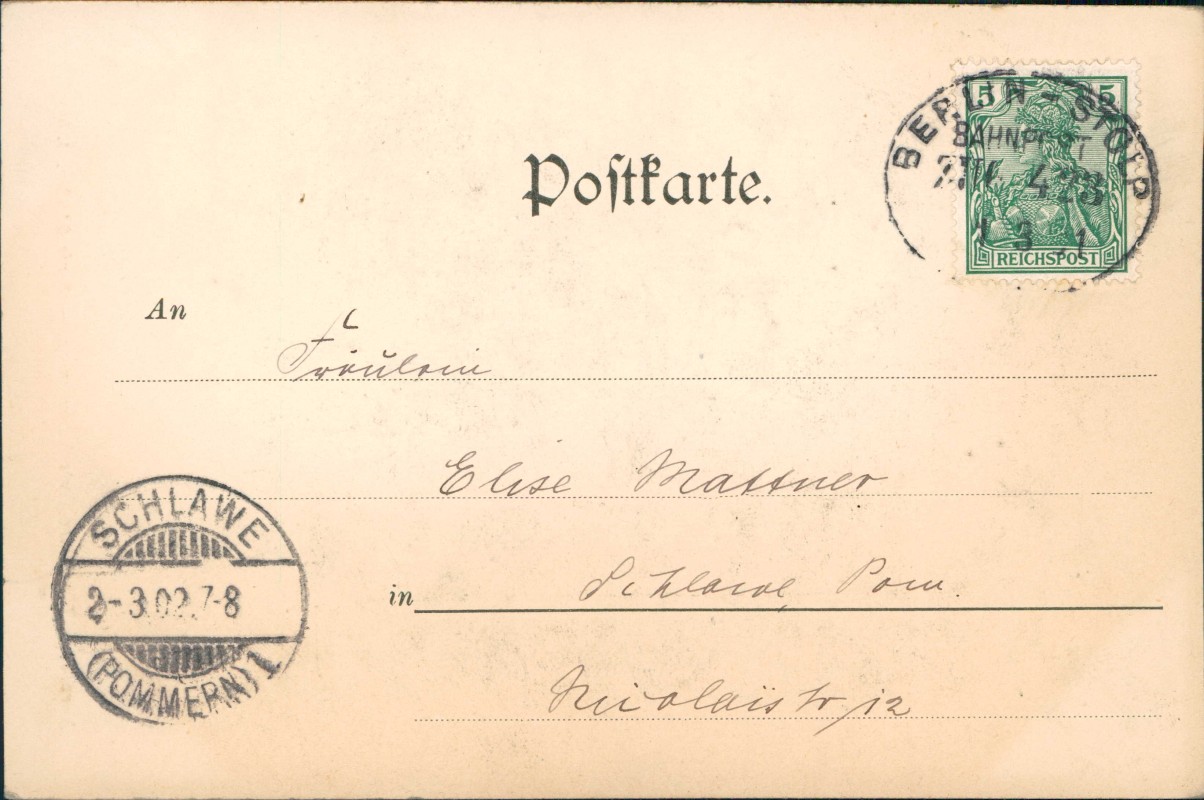 5 5
BERLIN - STOLP
BAHNPOST
ZUG 423
1 3
REICHSPOST
Postkarte.
An
Fräulein
Elise Mattner
in Schlawe, Pom.
Nicolaistr 12
SCHLAWE
2-3.02.7-8
(POMMERN) 1